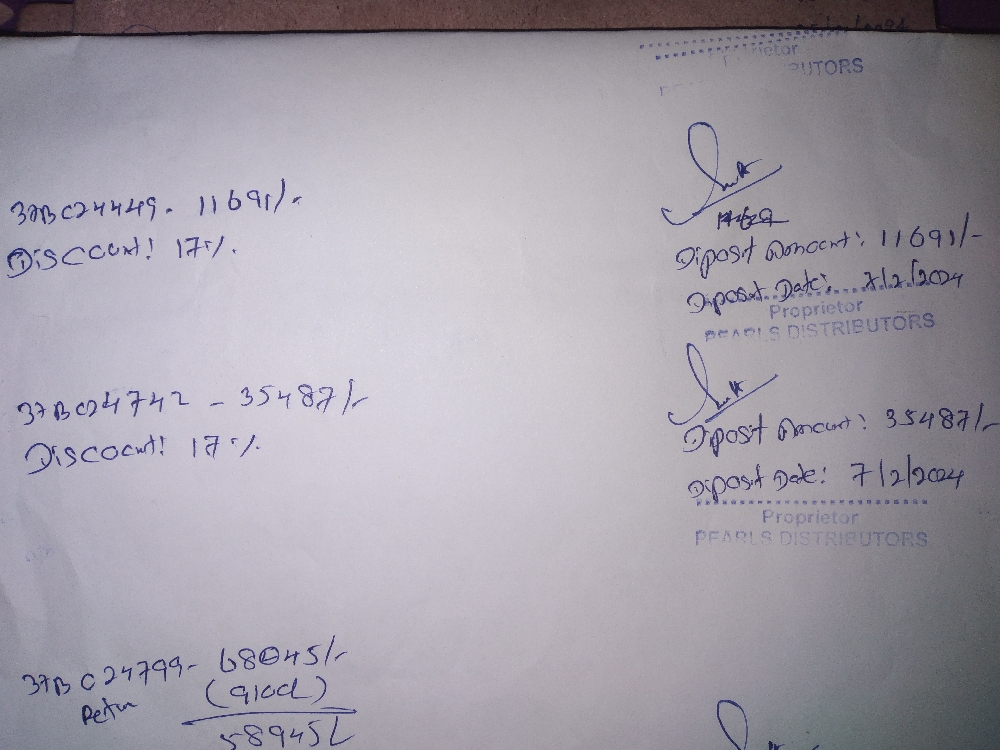 Proprietor
UTORS
37BC24449- 11691/-
Discount! 17%.
Diposit Amount: 11691/-
Diposit Date: 7/2/2024
Proprietor
PEARLS DISTRIBUTORS
37BC24742 - 35487/-
Discount! 17%.
Diposit Amount: 35487/-
Diposit Date: 7/2/2024
Proprietor
PEARLS DISTRIBUTORS
37BC24799- 68045/-
Retun (9100)
58945/-